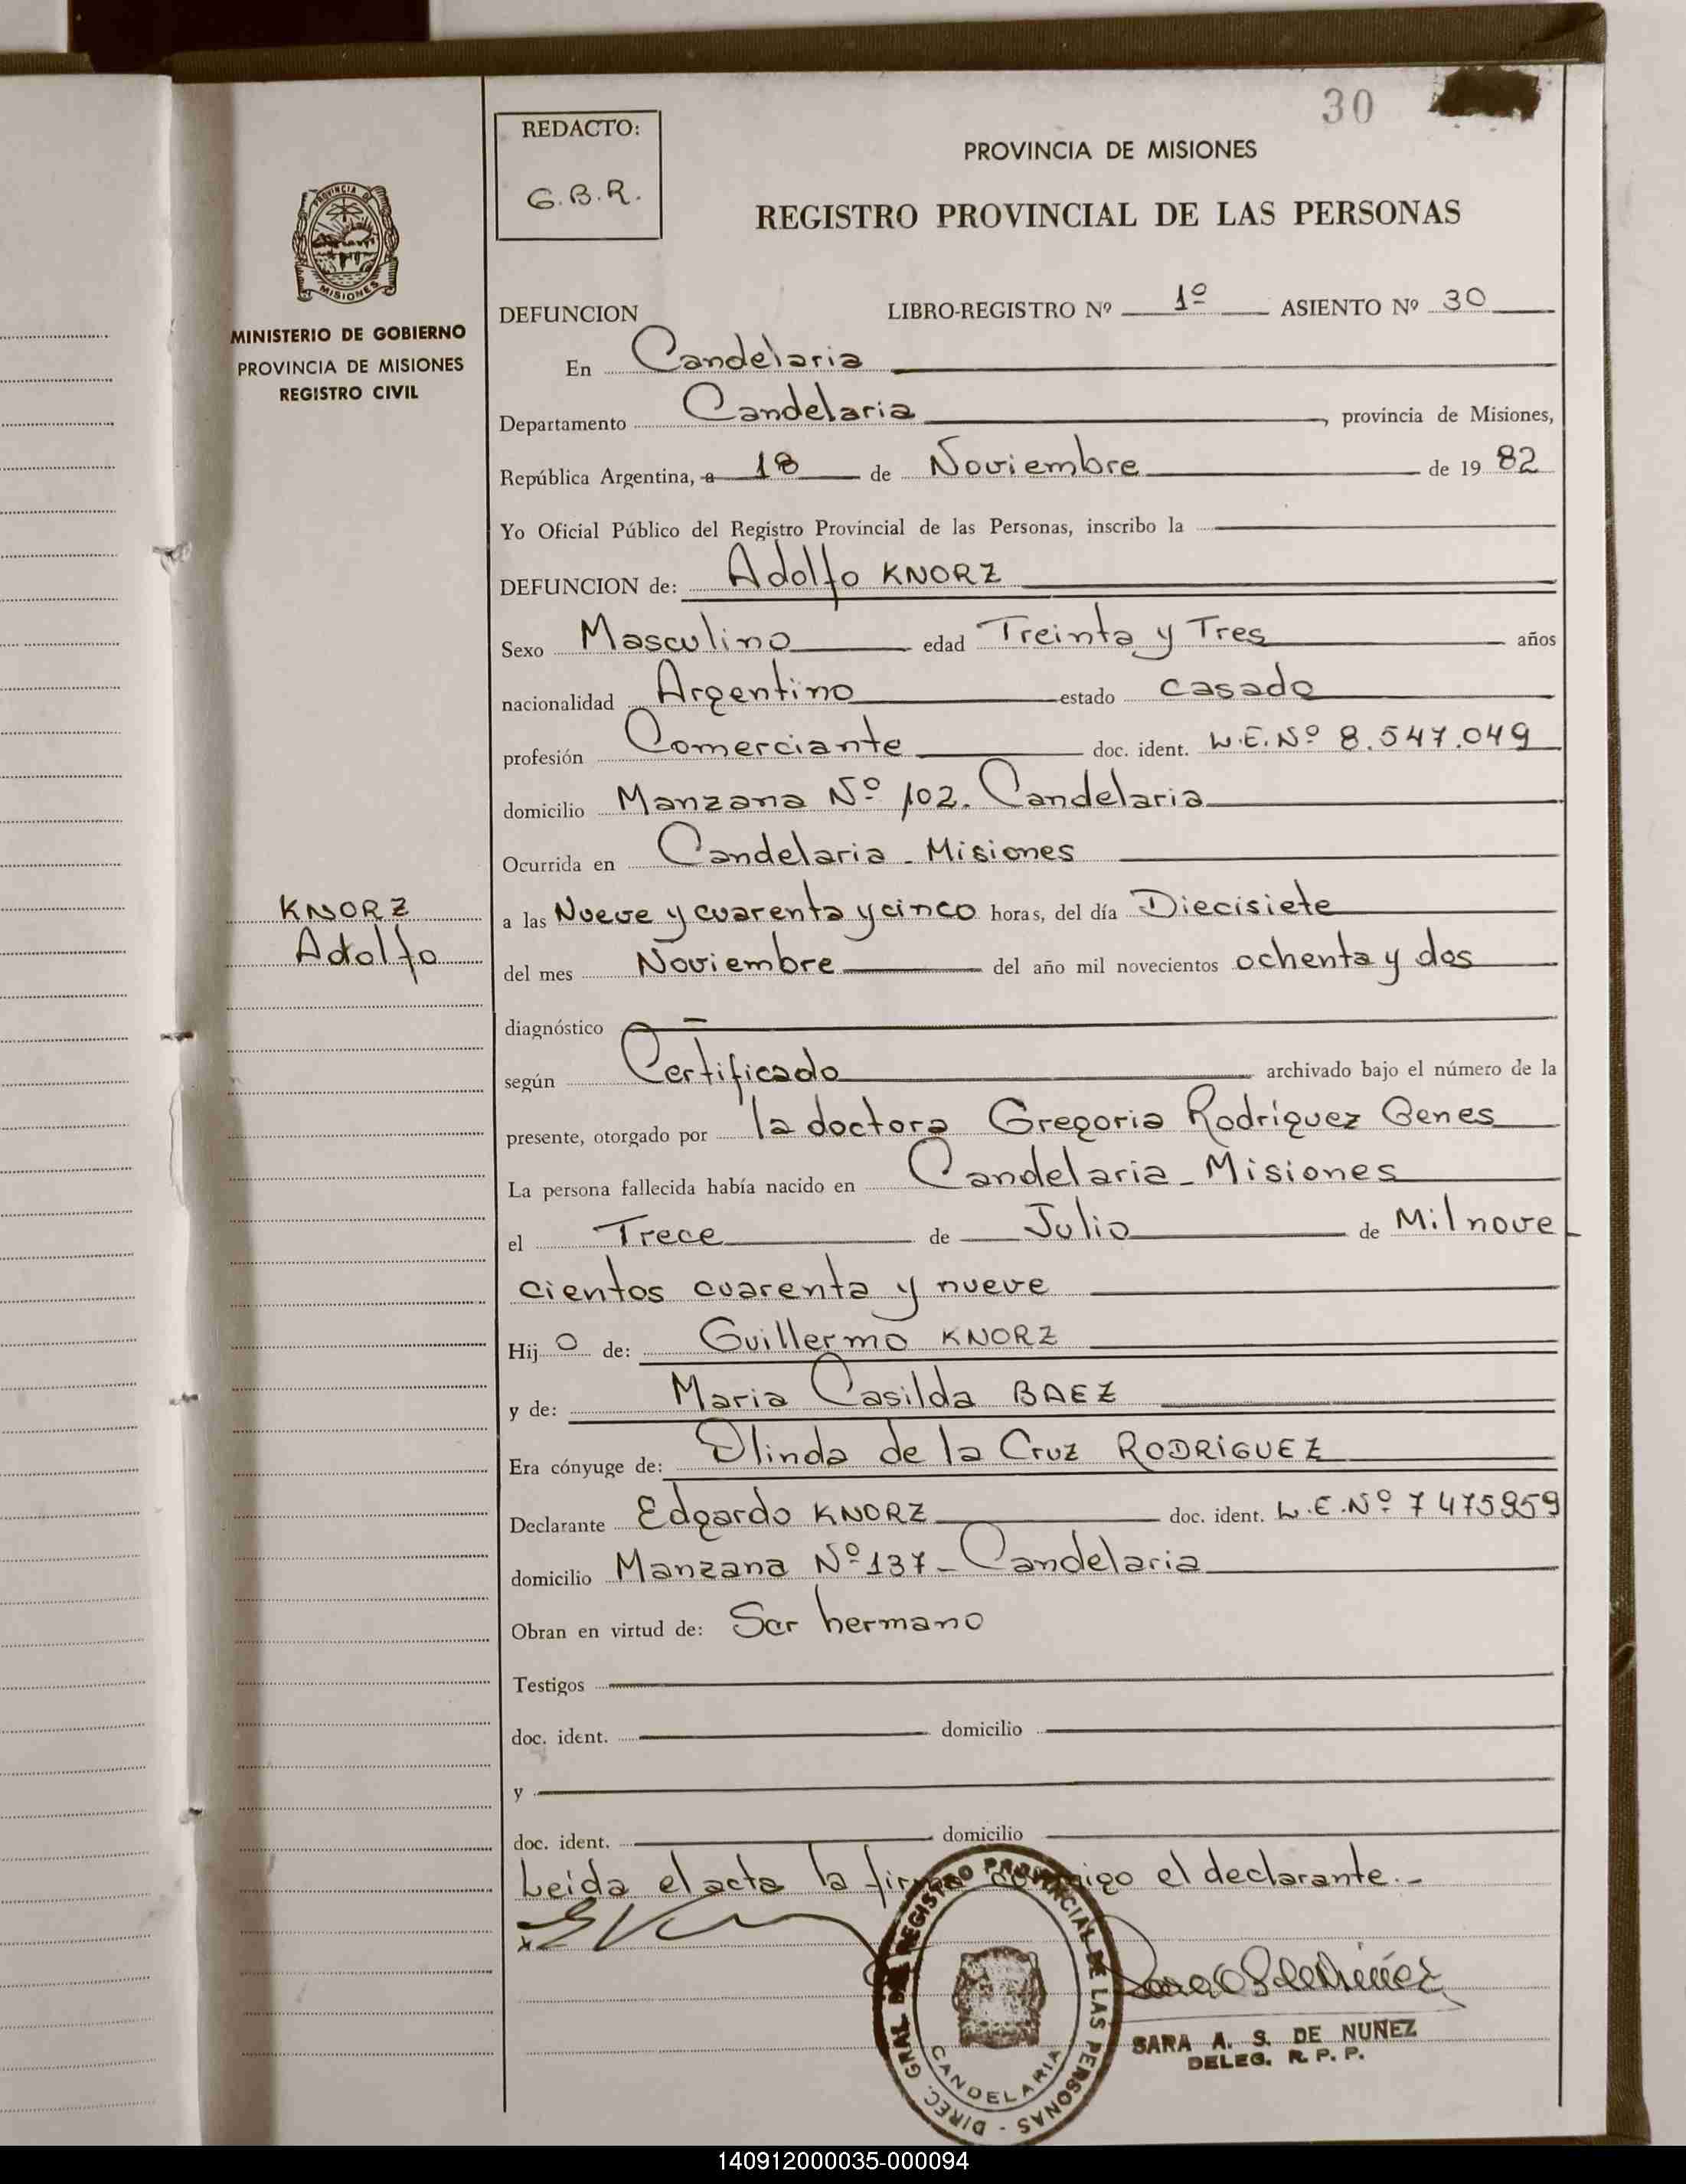 30
REDACTO:
G.B.R.
PROVINCIA DE MISIONES
REGISTRO PROVINCIAL DE LAS PERSONAS
PROVINCIA DE
MISIONES
MINISTERIO DE GOBIERNO
PROVINCIA DE MISIONES
REGISTRO CIVIL
DEFUNCION LIBRO-REGISTRO Nº 1º ASIENTO Nº 30
En Candelaria
Departamento Candelaria, provincia de Misiones,
República Argentina, a 18 de Noviembre de 19 82
Yo Oficial Público del Registro Provincial de las Personas, inscribo la
DEFUNCION de: Adolfo KNORZ
Sexo Masculino edad Treinta y Tres años
nacionalidad Argentino estado casado
profesión Comerciante doc. ident. L.E.Nº 8.547.049
domicilio Manzana Nº 102. Candelaria
Ocurrida en Candelaria - Misiones
KNORZ
Adolfo
a las Nueve y cuarenta y cinco horas, del día Diecisiete
del mes Noviembre del año mil novecientos ochenta y dos
diagnóstico
según Certificado archivado bajo el número de la
presente, otorgado por la doctora Gregoria Rodríguez Genes
La persona fallecida había nacido en Candelaria - Misiones
el Trece de Julio de Mil nove
cientos cuarenta y nueve
Hij o de: Guillermo KNORZ
y de: Maria Casilda BAEZ
Era cónyuge de: Olinda de la Cruz RODRIGUEZ
Declarante Edgardo KNORZ doc. ident. L.E.Nº 7 475959
domicilio Manzana Nº 137 - Candelaria
Obran en virtud de: Ser hermano
Testigos
doc. ident. domicilio
y
doc. ident. domicilio
Leida el acta la firma conmigo el declarante.-
DIREC. GRAL. DE REGISTRO PROVINCIAL DE LAS PERSONAS -
CANDELARIA
SARA A. S. DE NUÑEZ
DELEG. R. P. P.
140912000035-000094